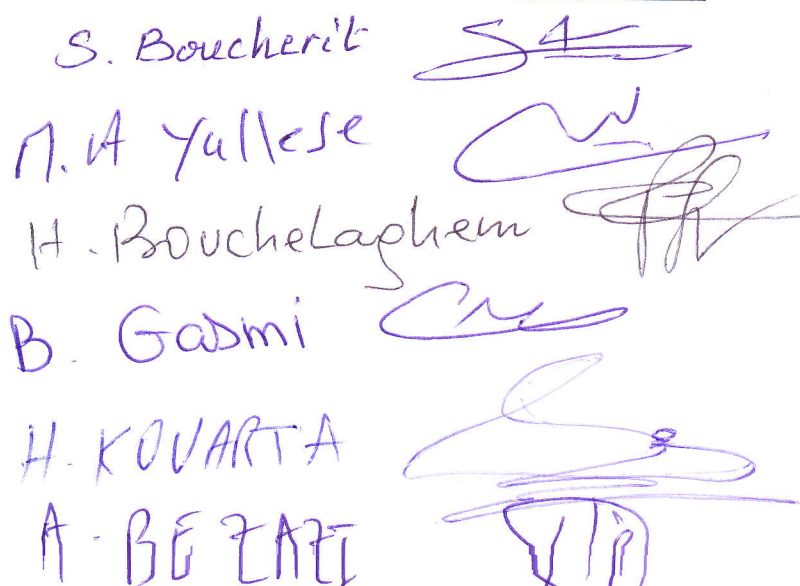 S. Boucherit
M. A Yallese
H. Bouchelaghem
B. Gasmi
H. KOUARTA
A - BEZAZI